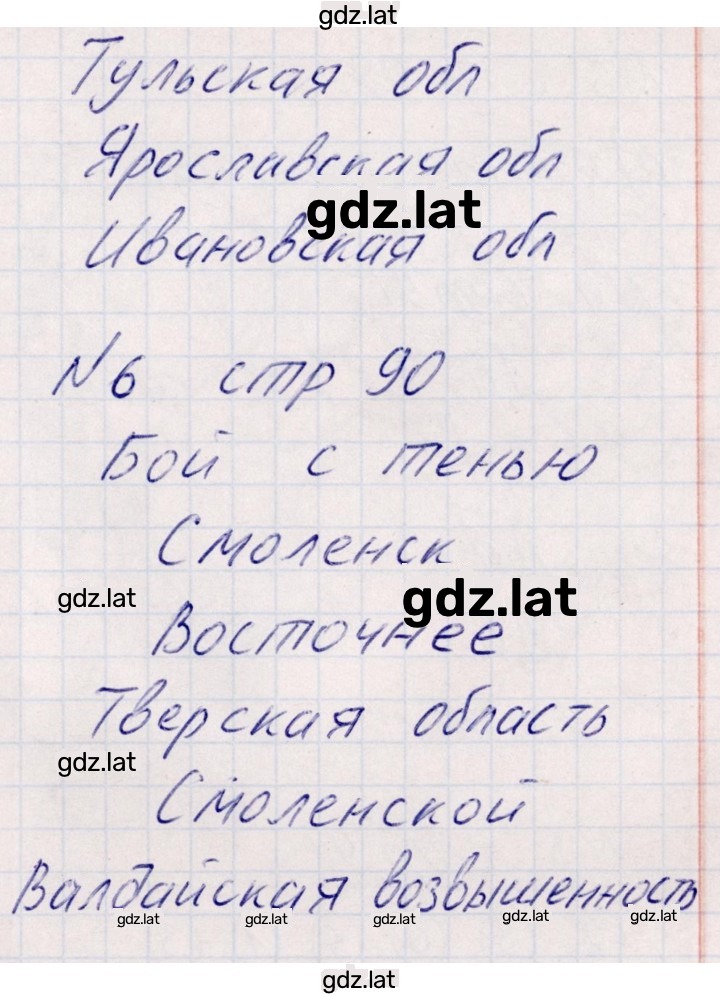 gdz.lat
Тульская обл
Ярославская обл
gdz.lat
Ивановская обл
N 6 стр 90
Бой с тенью
Смоленск
gdz.lat gdz.lat
Восточнее
Тверская область
gdz.lat
Смоленской
Валдайская возвышенность
gdz.lat gdz.lat gdz.lat gdz.lat gdz.lat
gdz.lat